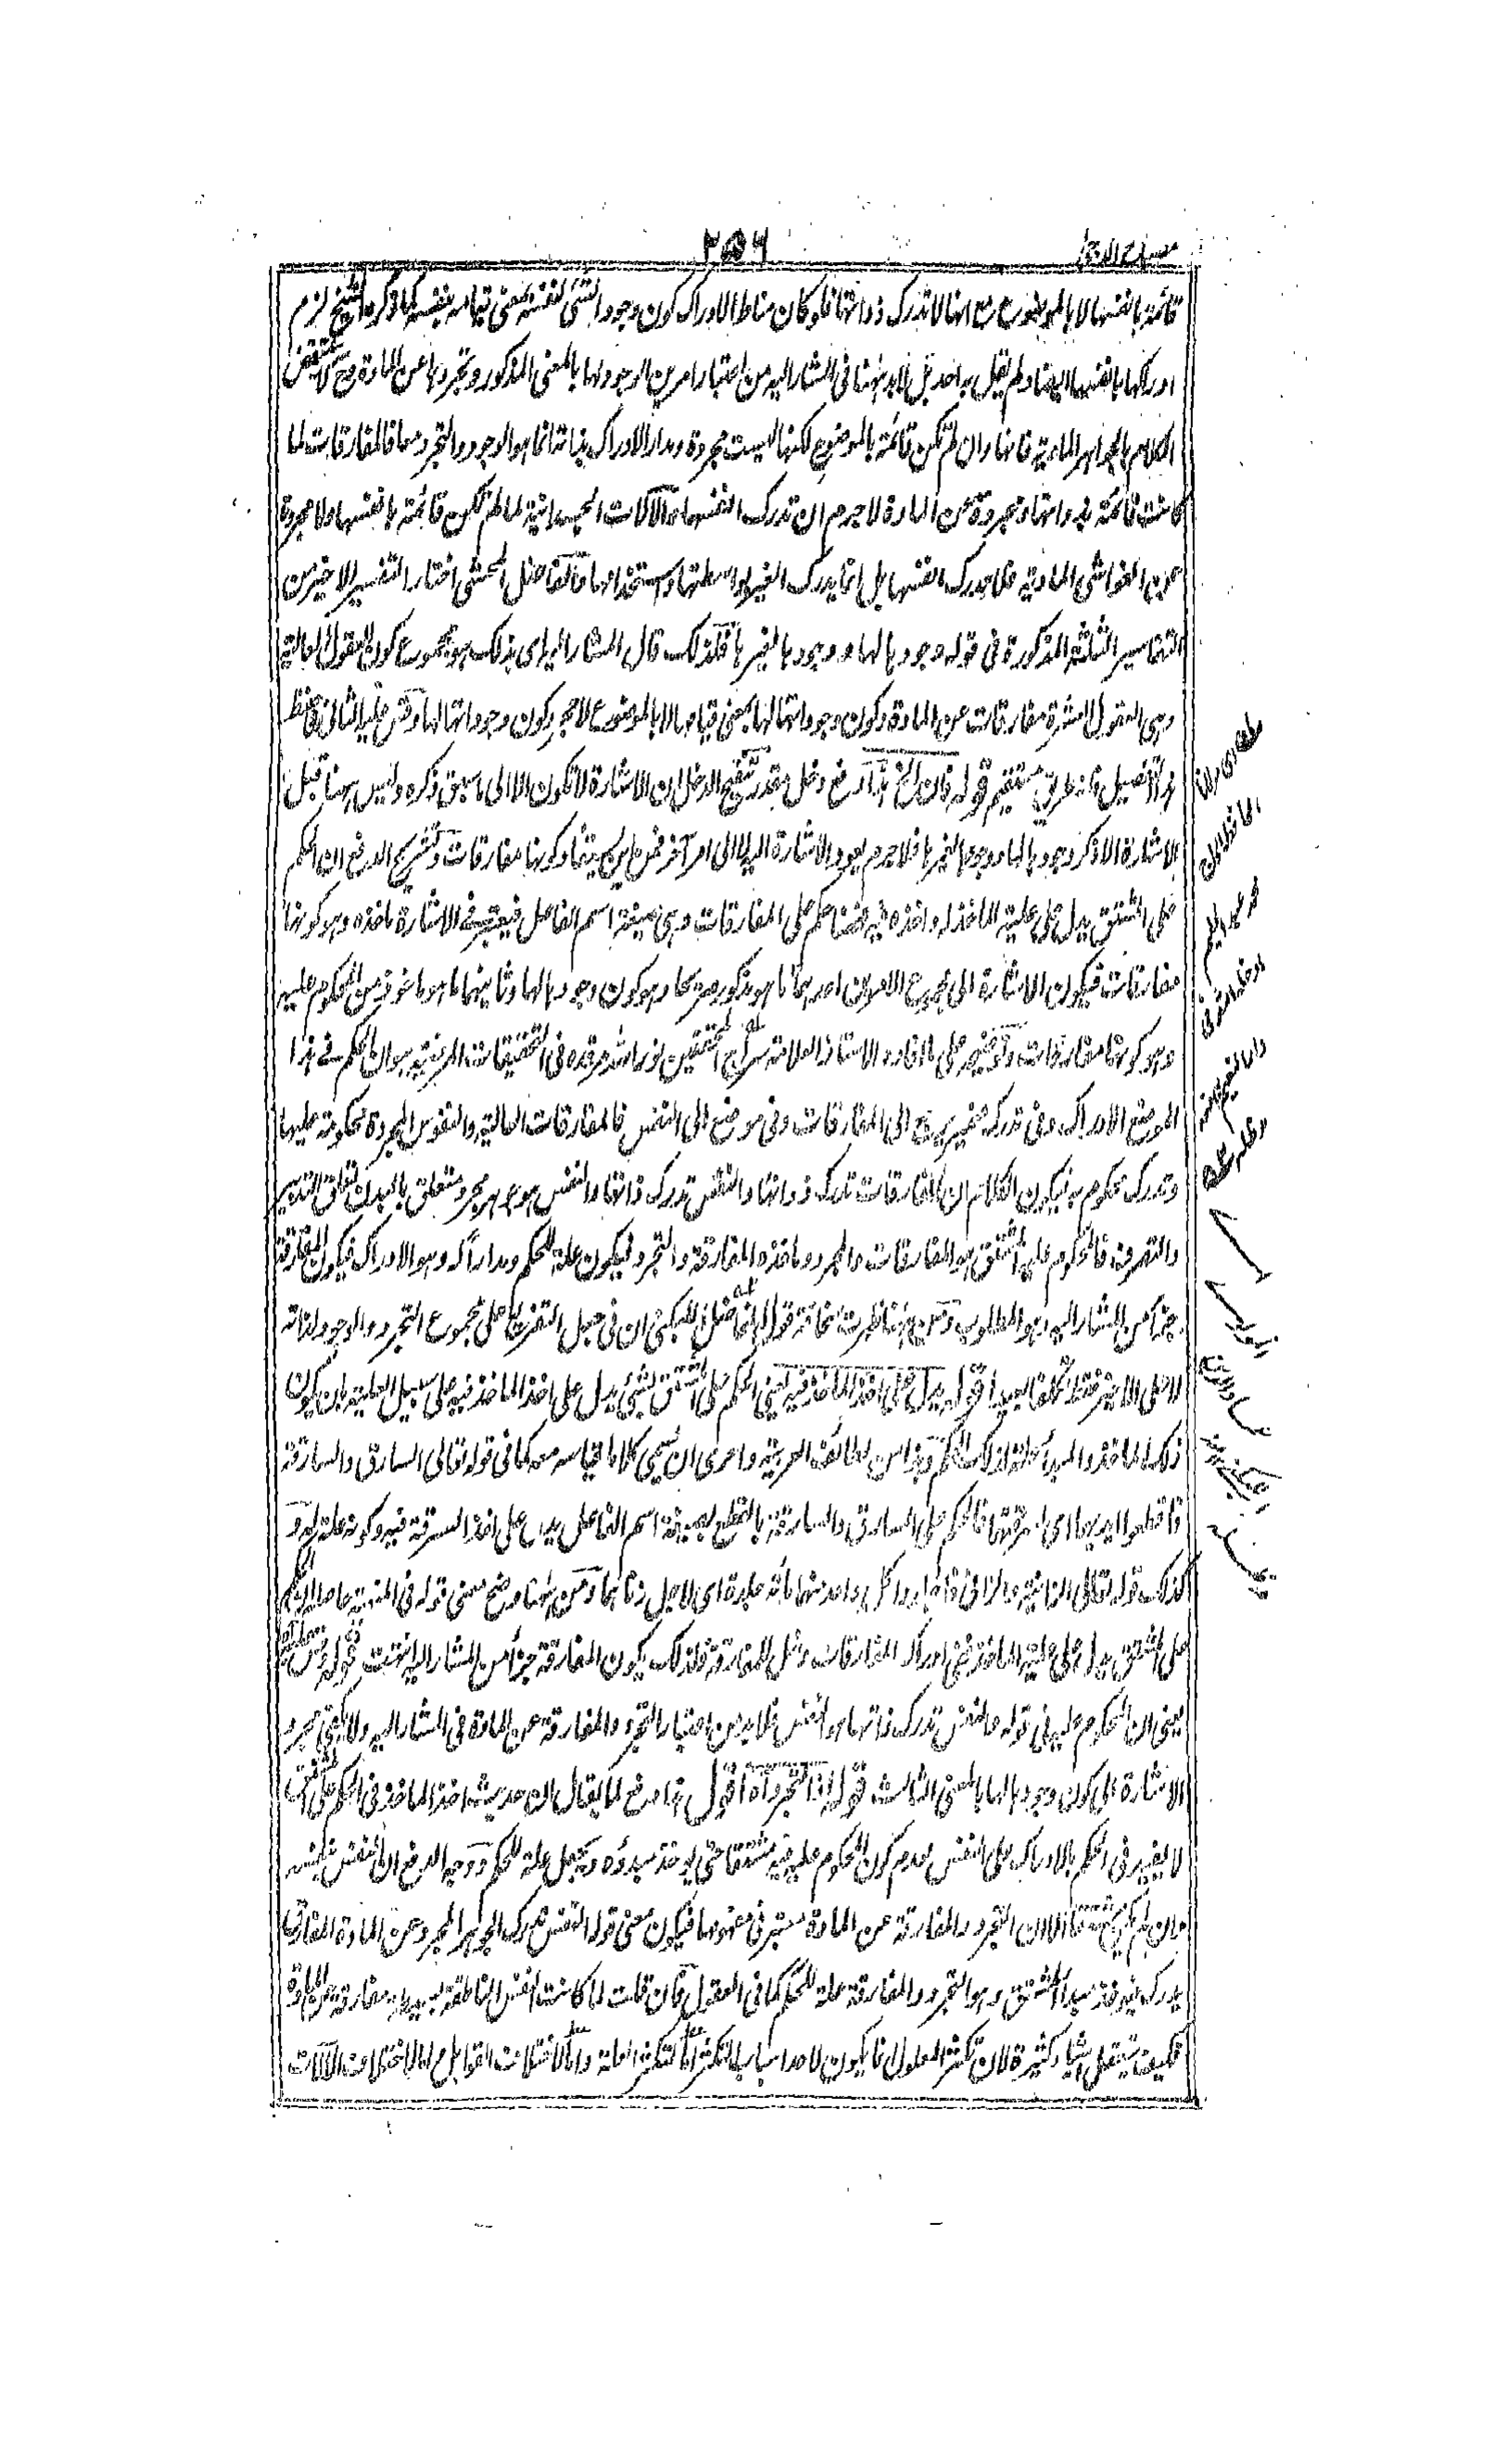 ٢٥٦
مصباح الدجى
قائمة بانفسها لا بالموضوع مع انها لا تدرك ذواتها فلو كان مناط الادراك كون وجود الشئ لنفسه بمعنى قيامه بنفسه كما ذكره الشيخ لزم
ادراكها بانفسها ايضا ولم يقل به احد بل لابد ههنا فى المشار اليه من اعتبار امرين الوجود لها بالمعنى المذكور وتجردها عن المادة وح لا ينتقض
الكلام بالجواهر المادية فانها وان لم تكن قائمة بالموضوع لكنها ليست مجردة ومدار الادراك بذاته انما هو الوجود والتجرد معا فالمفارقات لما
كانت قائمة بذواتها ومجردة عن المادة لا جرم ان تدرك انفسها والآلات الجسمانية لما لم تكن قائمة بانفسها ولا مجردة
عن الغواشى المادية فلا تدرك انفسها بل انما يدرك الغير بواسطتها واستخدامها فالفاضل المحشى اختار التفسير الاخير من
التفاسير الثلثة المذكورة فى قوله وجودها لها ووجودها لغيرها فلذلك قال المشار اليه اى بذلك هو مجموع كون العقول العالية
وهى العقول العشرة مفارقات عن المادة وكون وجوداتها لها بمعنى قيامها لا بالموضوع لا مجرد كون وجوداتها لها وقس عليه الثانى فاحفظ
هذا التفصيل فانه طريق مستقيم قوله فان الخ هذا دفع دخل مقدر تنقيح الدخل ان الاشارة لا تكون الا الى ما سبق ذكره وليس ههنا قبل
الاشارة الا ذكر وجودها لها ووجودها لغيرها فلا جرم يعود الاشارة اليها لا الى امر آخر فمن اين يتم كونها مفارقات وتشريح الدفع ان الحكم
على المشتق يدل على علية الماخذ له واخذه فيه فههنا حكم على المفارقات وهى صيغة اسم الفاعل فيعتبر فى الاشارة ماخذه وهو كونها
مفارقات فيكون الاشارة الى مجموع الامرين احدهما ما هو مذكور صريحا وهو كون وجودها لها وثانيهما ما هو ماخوذ من المحكوم عليه
وهو كونها مفارقات وتوضيحه على ما افاده الاستاذ العلامة سراج المحققين نور الله مرقده فى التحقيقات المرضية هو ان الحكم فى هذا
الموضع الادراك وفى تدرك ضمير يرجع الى المفارقات وفى موضع الى النفس فالمفارقات العالية والنفوس المجردة محكومة عليها
وتدرك محكوم به فيكون الكلام ان المفارقات تدرك ذواتها والنفس تدرك ذاتها والنفس جوهر مجرد متعلق بالبدن تعلق التدبير
والتصرف فالمحكوم عليه المشتق هو المفارقات والمجرد وماخذه المفارقة والتجرد فيكون علة للحكم ومدارا له وهو الادراك فيكون المفارقة
جزأ من المشار اليه وهو المطلوب ومن ههنا ظهرت سخافة قول الفاضل اللبكنى ان فى جعل التفريع على مجموع التجرد والوجود لذاته
لا على الاخير فقط تكلفا بعيدا قوله يدل على اخذ الماخذ فيه يعنى الحكم على المشتق بشئ يدل على اخذ الماخذ فيه على سبيل العلية بان يكون
ذلك الماخذ والمبدأ علة لذلك الحكم وهذا من لطائف العربية واحرى ان يسمى كلاما قياسه معه كما فى قوله تعالى السارق والسارقة
فاقطعوا ايديهما اى لسرقتهما فالحكم على السارق والسارقة بالقطع بصيغة اسم الفاعل يدل على اخذ السرقة فيه وكونه علة له و
كذلك قوله تعالى الزانية والزانى فاجلدوا كل واحد منهما مائة جلدة اى لاجل زناهما ومن ههنا وضح معنى قوله فى المنهية حاصله ان الحكم
على المشتق يدل على علية الماخذ ففى ادراك المفارقات دخل للمفارقة فلذلك يكون المفارقة جزأ من المشار اليه انتهت قوله وقس عليه
يعنى ان المحكوم عليه فى قوله والنفس تدرك ذاتها هو النفس فلابد من اعتبار التجرد والمفارقة عن المادة فى المشار اليه ولا يكفى مجرد
الاشارة الى كون وجودها لها بالمعنى الثالث قوله اذ التجرد آه اقول هذا دفع لما يقال ان حديث اخذ الماخذ فى الحكم على المشتق
لا يفيد فى الحكم بالادراك على النفس لعدم كون المحكوم عليه فيه مشتقا حتى يوخذ مبدؤه ويجعل علة للحكم ووجه الدفع ان النفس
وان لم يكن مشتقا الا ان التجرد والمفارقة عن المادة معتبر فى مفهومها فيكون معنى قوله النفس تدرك الجوهر المجرد عن المادة المفارق
يدرك فيوخذ مبدأ المشتق وهو التجرد والمفارقة علة للحكم كما فى العقول فان قلت لما كانت النفس الناطقة بسيطة مفارقة عن المادة
فكيف تتعقل اشياء كثيرة لان تكثر المعلول انما يكون لاحد اسباب التكثر اما لتكثر العلة واما لاختلاف القوابل واما لاختلاف الآلات